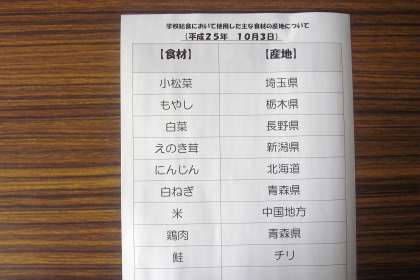 学校給食において使用した主な食材の産地について
（平成２５年　１０月３日）
【食材】　【産地】
小松菜　埼玉県
もやし　栃木県
白菜　長野県
えのき茸　新潟県
にんじん　北海道
白ねぎ　青森県
米　中国地方
鶏肉　青森県
鮭　チリ